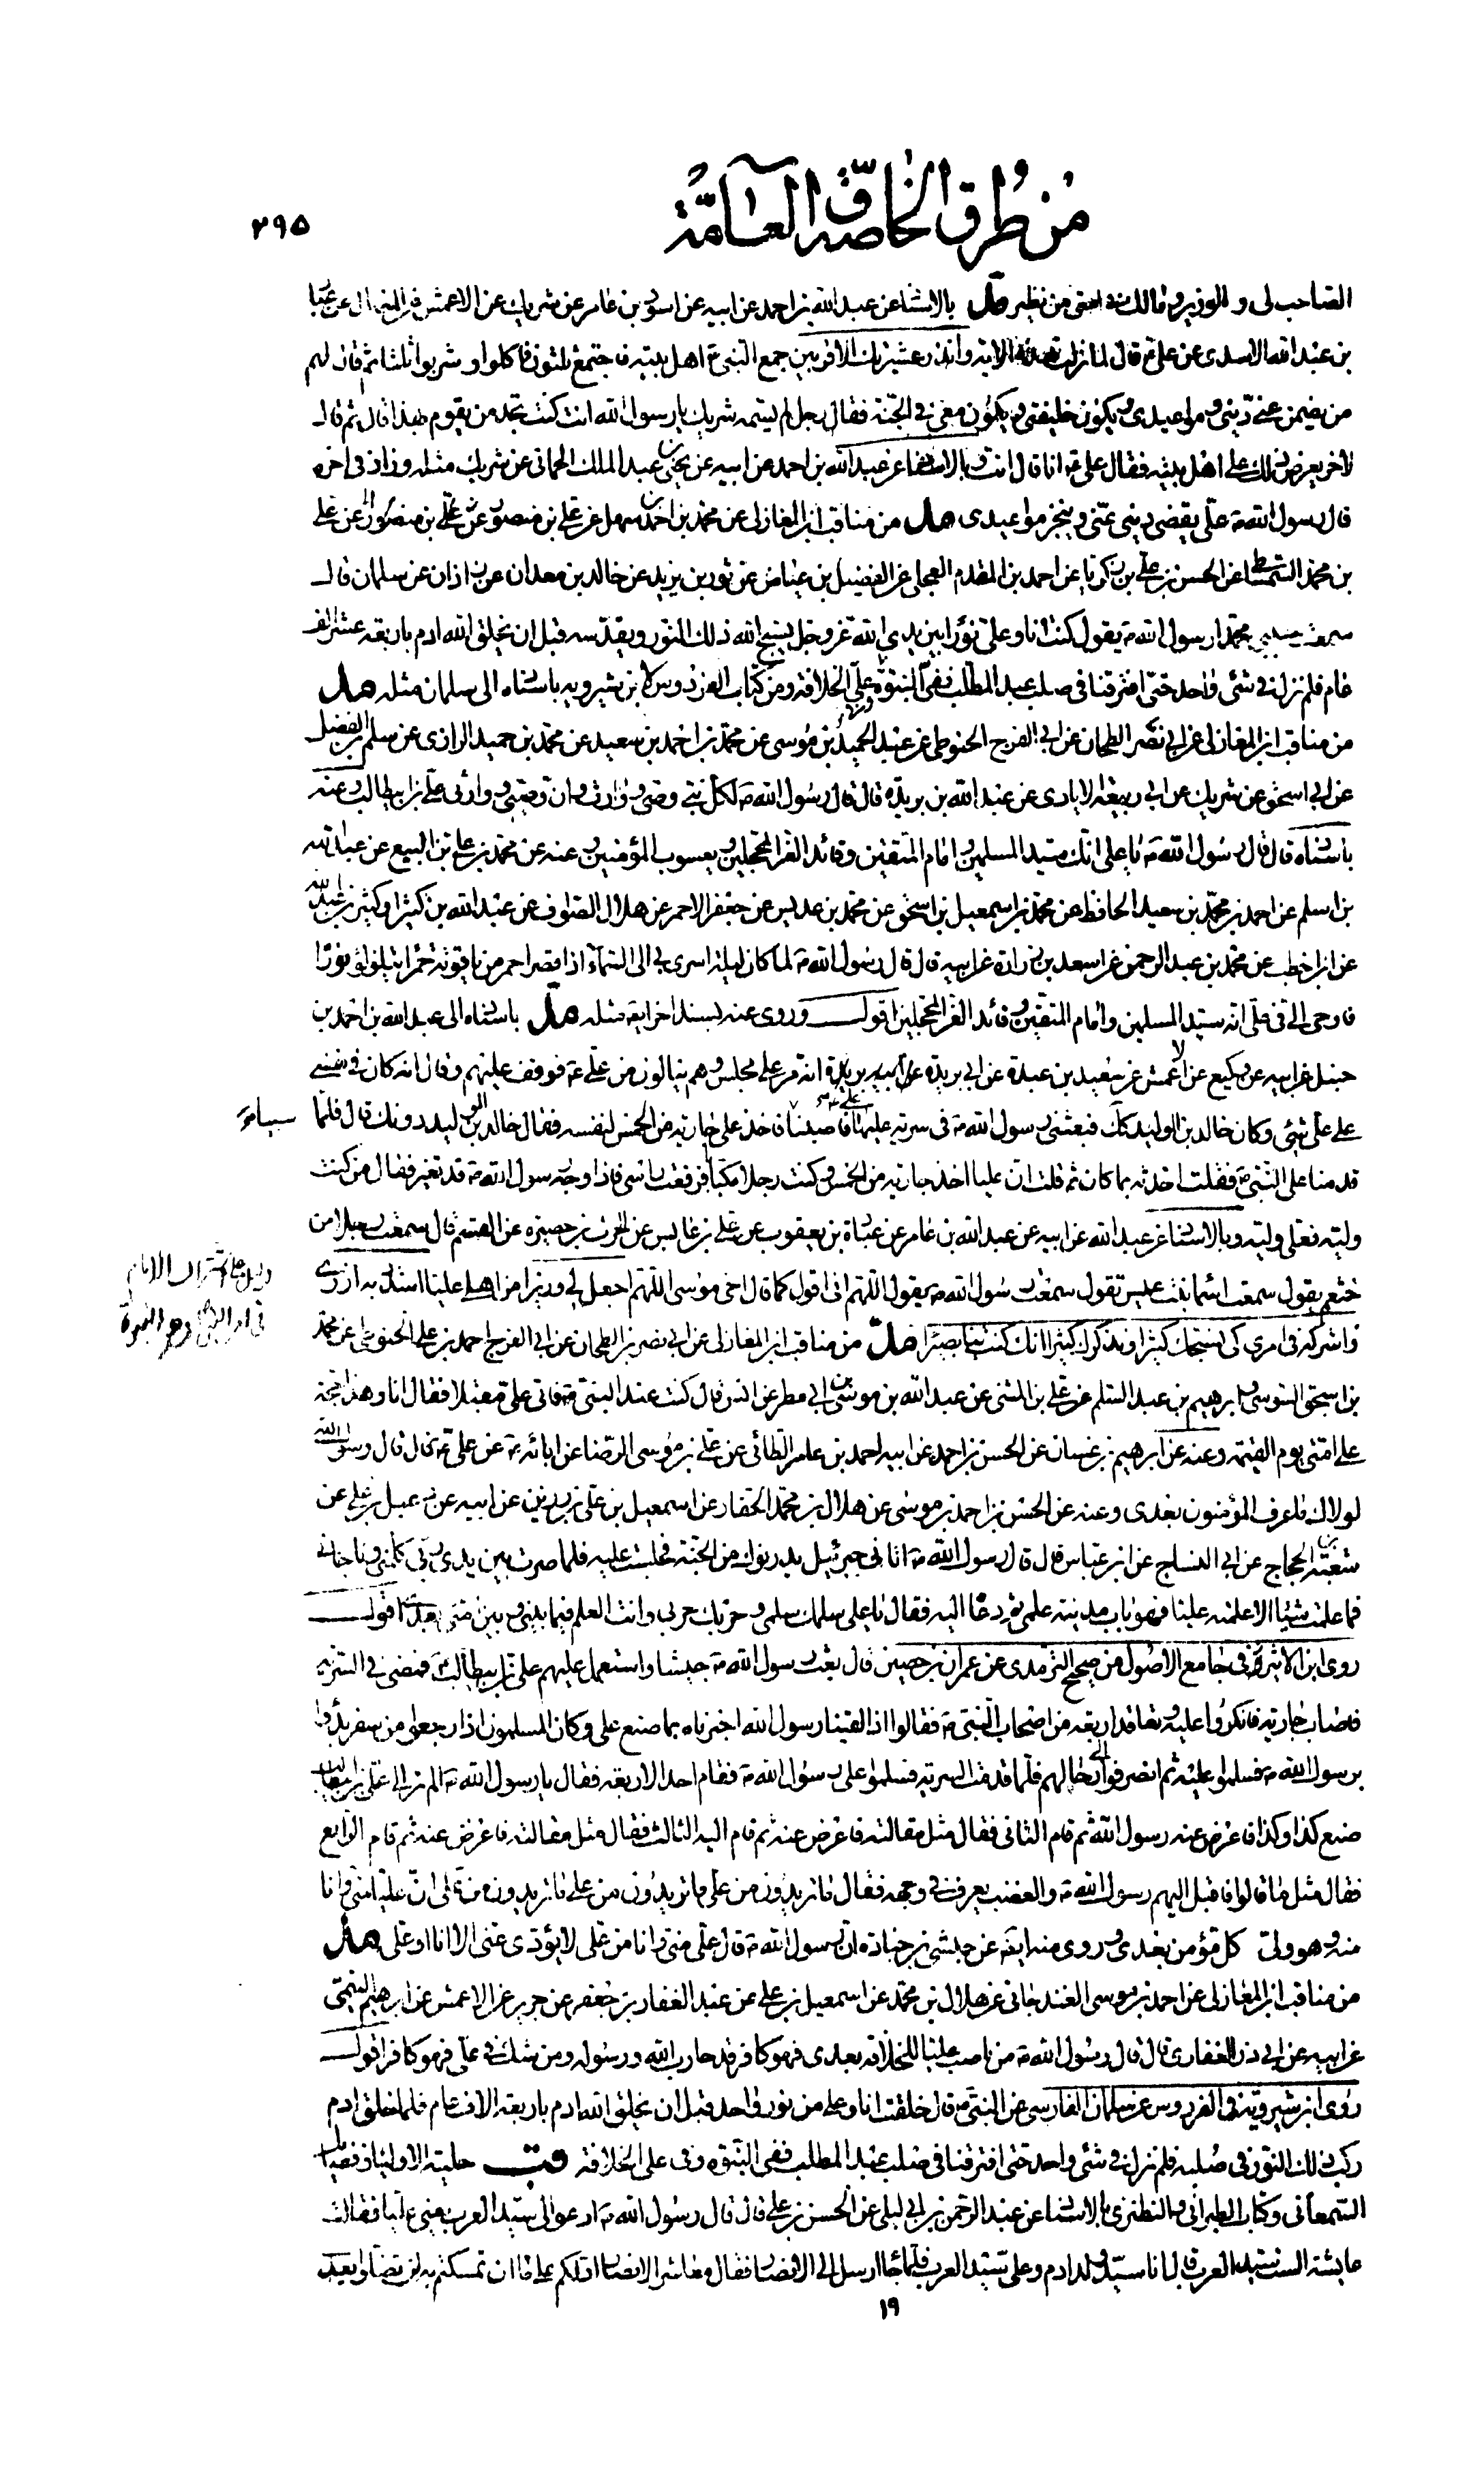 من طرق الخاصّة و العامّة
٢٩٥
الصاحب لى و الوزير و مالك فى امتى من نظير مد بالاسناد عن عبد الله بن احمد عن ابيه عن اسود بن عامر عن شريك عن الاعمش عن المنهال عن عباد
بن عبد الله الاسدى عن على ع قال لما نزلت هذه الاية و انذر عشيرتك الاقربين جمع النبى ص اهل بيته فاجتمع ثلثون فاكلوا و شربوا ثلثا ثم قال لهم
من يضمن عنى دينى و مواعيدى و يكون خليفتى و يكون معى فى الجنة فقال رجل لم يسمه شريك يا رسول الله انت كنت تجد من يقوم بهذا قال ثم قال
لاخر يعرض ذلك على اهل بيته فقال على ع انا قال انت و بالاسناد عن عبد الله بن احمد عن ابيه عن يحيى بن عبد الملك الحمانى عن شريك مثله و زاد فى اخره
قال رسول الله ص على يقضى دينى عنى و ينجز مواعيدى مد من مناقب ابن المغازلى عن محمد بن احمد بن سهل عن على بن منصور عن على بن منصور عن على
بن محمد الشمشاطى عن الحسن بن على بن زكريا عن احمد بن المقدام العجلى عن الفضيل بن عياض عن ثور بن يزيد عن خالد بن معدان عن زاذان عن سلمان قال
سمعت حبيبى محمدا رسول الله ص يقول كنت انا و على نورا بين يدى الله عز و جل يسبح الله ذلك النور و يقدسه قبل ان يخلق الله ادم باربعة عشر الف
عام فلم نزل فى شئ واحد حتى افترقنا فى صلب عبد المطلب ففى النبوة و فى على الخلافة و من كتاب الفردوس لابن شيرويه باسناده الى سلمان مثله مد
من مناقب ابن المغازلى عن ابى نصر الطحان عن ابى الفرج الحنوطى عن عبد الحميد بن موسى عن محمد بن احمد بن سعيد عن محمد بن حميد الرازى عن سلم بن الفضل
عن ابى اسحق عن شريك عن ابى ربيعة الايادى عن عبد الله بن بريدة قال قال رسول الله ص لكل نبى وصى و وارث و ان وصيى و وارثى على بن ابيطالب و عنه
باسناده قال قال رسول الله ص يا على انك سيد المسلمين و امام المتقين و قائد الغر المحجلين و يعسوب المؤمنين و عنه عن محمد بن على بن البيع عن عبد الله
بن اسلم عن احمد بن محمد بن سعيد الحافظ عن محمد بن اسمعيل بن اسحق عن محمد بن عديس عن جعفر الاحمر عن هلال الصواف عن عبد الله بن كثير او كثير بن عبد الله
عن ابن اخطب عن محمد بن عبد الرحمن عن اسعد بن زرارة عن ابيه قال قال رسول الله ص لما كان ليلة اسرى بى الى السماء اذا قصر احمر من ياقوتة حمراء يتلؤلؤ نورا
فاوحى الى فى على انه سيد المسلمين و امام المتقين و قائد الغر المحجلين اقول و روى عنه بسند اخر ايضا مثله مد باسناده الى عبد الله بن احمد بن
حنبل عن ابيه عن وكيع عن الاعمش عن سعيد بن عبيدة عن ابى بريدة عن ابيه بريدة انه مر على مجلس و هم ينالون من على ع فوقف عليهم و قال انه كان فى نفسى
على على شئ و كان خالد بن الوليد كذلك فبعثنى رسول الله ص فى سرية عليها على ع فاصبنا فاخذ على جارية من الخمس لنفسه فقال خالد بن الوليد دونك قال فلما
سبياء
قدمنا على النبى ص فقلت احدثه بما كان ثم قلت ان عليا اخذ جارية من الخمس و كنت رجلا مكبابا فرفعت راسى فاذا وجه رسول الله ص قد تغير فقال من كنت
وليه فعلى وليه و بالاسناد عن عبد الله عن ابيه عن عبد الله بن عامر عن عباد بن يعقوب عن على بن عابس عن الحرث بن حصيرة عن القسم قال سمعت رجلا من
خثعم يقول سمعت اسماء بنت عميس تقول سمعت رسول الله ص يقول اللهم انى اقول كما قال اخى موسى اللهم اجعل لى وزيرا من اهلى عليا اشدد به ازرى
و اشركه فى امرى كى نسبحك كثيرا و نذكرك كثيرا انك كنت بنا بصيرا مد من مناقب ابن المغازلى عن ابى نصر بن الطحان عن ابى الفرج احمد بن على الحنوطى عن محمد
بن اسحق السوسى و ابرهيم بن عبد السلم عن على بن المثنى عن عبد الله بن موسى بن ابى مطر عن انس قال كنت عند النبى ص فاتى على مقبلا فقال انا و هذا حجة
على امتى يوم القيمة و عنه عن ابرهيم بن غسان عن الحسن بن احمد عن ابيه احمد بن عامر الطائى عن على بن موسى الرضا عن ابائه ع عن على ع قال قال رسول الله
لولاك ما عرف المؤمنون بعدى و عنه عن الحسن بن احمد بن موسى عن هلال بن محمد الحفار عن اسمعيل بن على بن رزين عن ابيه عن دعبل بن على عن
شعبة بن الحجاج عن ابى التياح عن ابن عباس قال قال رسول الله ص اتانى جبرئيل بدرنوك من الجنة فجلست عليه فلما صرت بين يدى ربى كلمنى و ناجانى
فما علمت شيئا الا علمته عليا فهو باب مدينة علمى ثم دعا اليه فقال يا على سلمك سلمى و حربك حربى و انت العلم فيما بينى و بين امتى بعدى اقول
روى ابن الاثير فى جامع الاصول من صحيح الترمذى عن عمران بن حصين قال بعث رسول الله ص جيشا و استعمل عليهم على بن ابيطالب ع فمضى فى السرية
فاصاب جارية فانكروا عليه و تعاقد اربعة من اصحاب النبى ص فقالوا اذا لقينا رسول الله اخبرناه بما صنع على و كان المسلمون اذا رجعوا من سفر بدؤا
برسول الله ص فسلموا عليه ثم انصرفوا الى رحالهم فلما قدمت السرية فسلموا على رسول الله ص فقام احد الاربعة فقال يا رسول الله ص الم تر الى على بن ابيطالب
صنع كذا و كذا فاعرض عنه رسول الله ثم قام الثانى فقال مثل مقالته فاعرض عنه ثم قام اليه الثالث فقال مثل مقالته فاعرض عنه ثم قام الرابع
فقال مثل ما قالوا فاقبل اليهم رسول الله ص و الغضب يعرف فى وجهه فقال ما تريدون من على ما تريدون من على ما تريدون من على ان عليا منى و انا
منه و هو ولى كل مؤمن بعدى و روى منه ايضا عن حبشى بن جنادة ان رسول الله ص قال على منى و انا من على لا يؤدى عنى الا انا او على مد
من مناقب ابن المغازلى عن احمد بن موسى الغندجانى عن هلال بن محمد عن اسمعيل بن على عن عبد الغفار بن جعفر عن جرير عن الاعمش عن ابرهيم التيمى
عن ابيه عن ابى ذر الغفارى قال قال رسول الله ص من ناصب عليا للخلافة بعدى فهو كافر قد حارب الله و رسوله و من شك فى على فهو كافر اقول
روى ابن شيرويه فى الفردوس عن سلمان الفارسى عن النبى ص قال خلقت انا و على من نور واحد قبل ان يخلق الله ادم باربعة الاف عام فلما خلق ادم
ركب ذلك النور فى صلبه فلم نزل فى شئ واحد حتى افترقنا فى صلب عبد المطلب ففى النبوة و فى على الخلافة قب حلية الاولياء و فضايل
السمعانى و كتاب الطبرانى و النطنزى بالاسناد عن عبد الرحمن بن ابى ليلى عن الحسن بن على قال قال رسول الله ص ادعو الى سيد العرب يعنى عليا فقالت
عايشة الست سيد العرب قال انا سيد ولد ادم و على سيد العرب فلما جاء ارسل الى الانصار فقال معاشر الانصار ادلكم على ما ان تمسكتم به لن تضلوا بعده
١٩